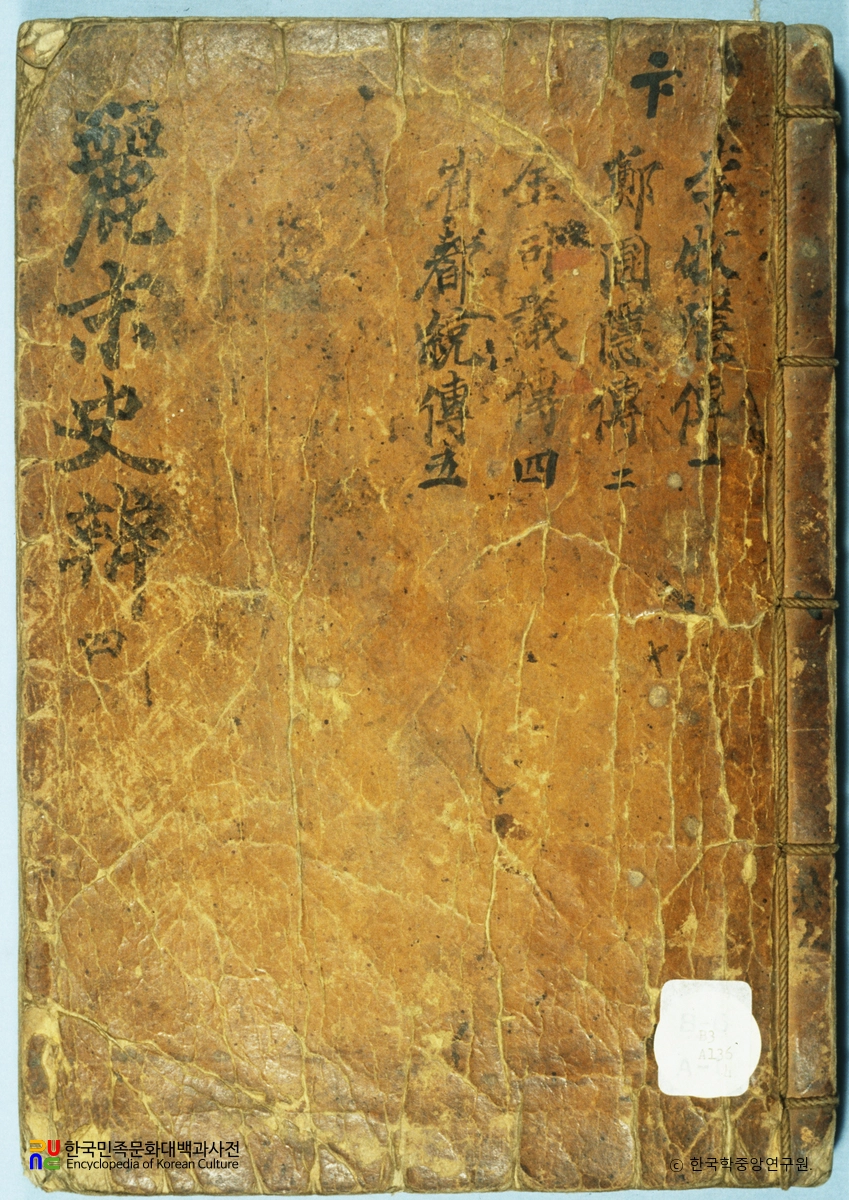 卞
李牧隱傳一
鄭圃隱傳二
金司議傳四
崔都統傳五
麗末史辨
四
한국민족문화대백과사전
Encyclopedia of Korean Culture
© 한국학중앙연구원.